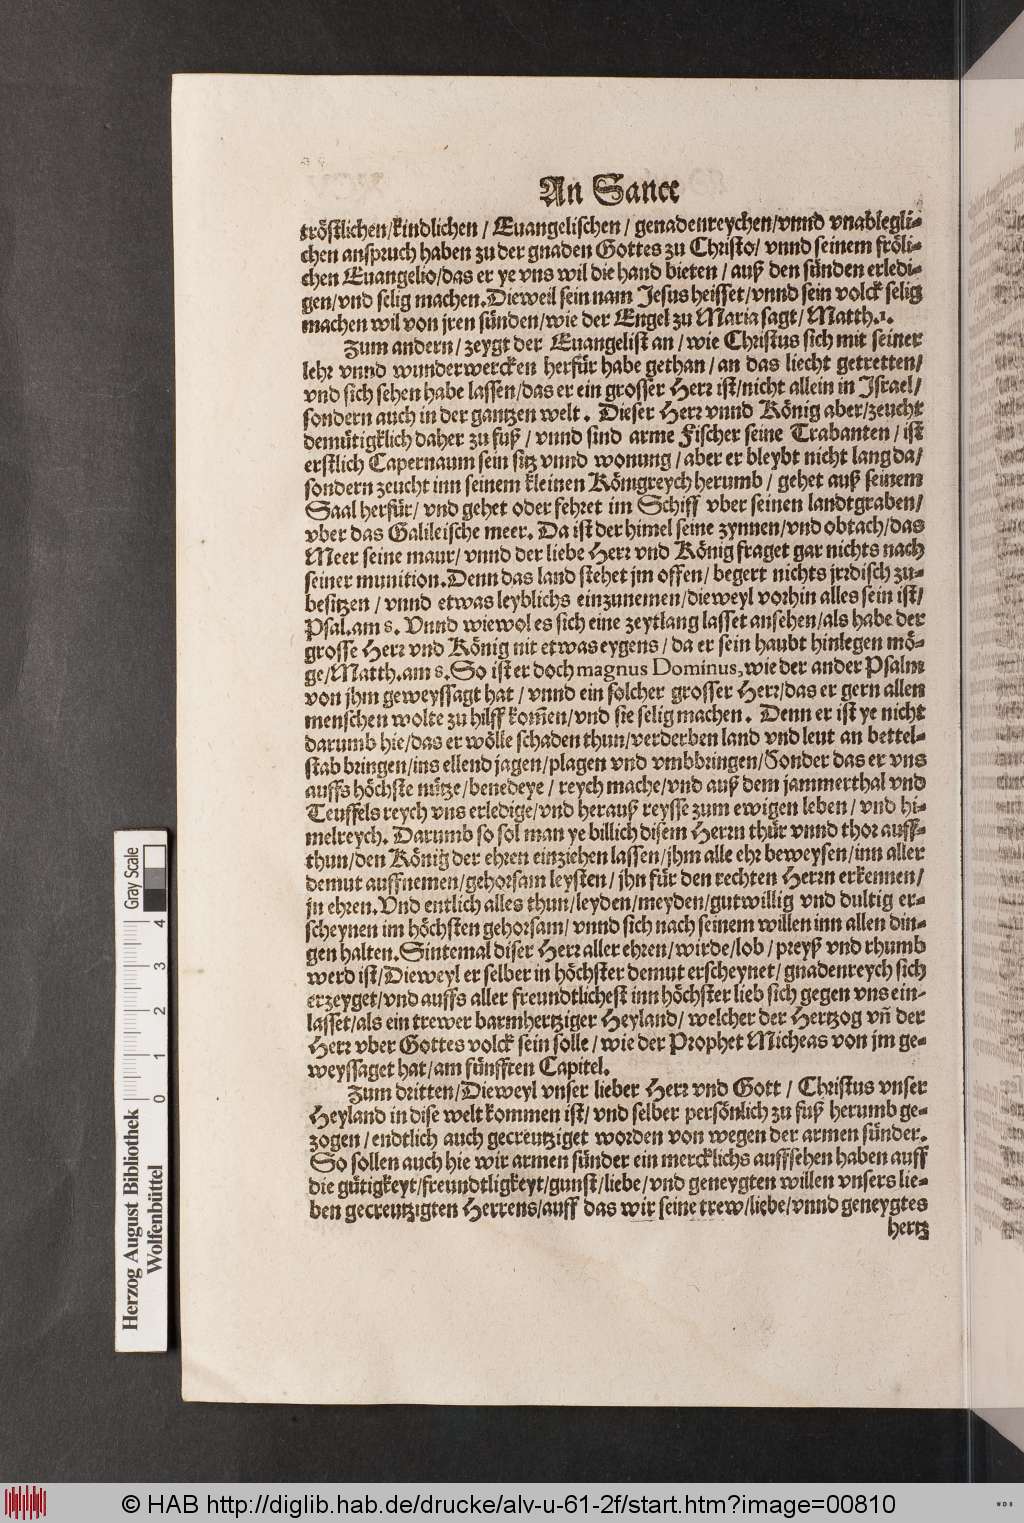 An Sanct
tröstlichen/kindlichen / Euangelischen / genadenreychen/vnnd vnablegli-
chen anspruch haben zu der gnaden Gottes zu Christo/ vnnd seinem fröli-
chen Euangelio/das er ye vns wil die hand bieten / auß den sünden erledi-
gen/vnd selig machen.Dieweil sein nam Jesus heisset/vnnd sein volck selig
machen wil von jren sünden/wie der Engel zu Maria sagt/ Matth.1.
Zum andern/ zeygt der Euangelist an / wie Christus sich mit seiner
lehr vnnd wunderwercken herfür habe gethan / an das liecht getretten/
vnd sich sehen habe lassen/das er ein grosser Herr ist/nicht allein in Israel/
sondern auch in der gantzen welt. Dieser Herr vnnd König aber/zeucht
demütigklich daher zu fuß / vnnd sind arme Fischer seine Trabanten / ist
erstlich Capernaum sein sitz vnnd wonung / aber er bleybt nicht lang da/
sondern zeucht inn seinem kleinen Königreych herumb / gehet auß seinem
Saal herfür/ vnd gehet oder fehret im Schiff vber seinen landtgraben/
vber das Galileische meer. Da ist der himel seine zynnen/vnd obtach/das
Meer seine maur/ vnnd der liebe Herr vnd König fraget gar nichts nach
seiner munition.Denn das land stehet jm offen/ begert nichts jrrdisch zu-
besitzen / vnnd etwas leyblichs einzunemen/dieweyl vorhin alles sein ist/
Psal.am 8. Vnnd wiewol es sich eine zeytlang lasset ansehen/als habe der
grosse Herr vnd König nit etwas eygens / da er sein haubt hinlegen mö-
ge/Matth.am 8.So ist er doch magnus Dominus, wie der ander Psalm
von jhm geweyssagt hat / vnnd ein solcher grosser Herr/das er gern allen
menschen wolte zu hilff kom̃en/vnd sie selig machen. Denn er ist ye nicht
darumb hie/das er wölle schaden thun/verderben land vnd leut an bettel-
stab bringen/ins ellend jagen/plagen vnd vmbbringen/Sonder das er vns
auffs höchste nütze/benedeye / reych mache/vnd auß dem jammerthal vnd
Teuffels reych vns erledige/vnd herauß reysse zum ewigen leben / vnd hi-
melreych. Darumb so sol man ye billich disem Herrn thür vnnd thor auff-
thun/den König der ehren einziehen lassen/jhm alle ehr beweysen/inn aller
demut auffnemen/gehorsam leysten/ jhn für den rechten Herrn erkennen/
jn ehren.Vnd entlich alles thun/leyden/meyden/gutwillig vnd dultig er-
scheynen im höchsten gehorsam/ vnnd sich nach seinem willen inn allen din-
gen halten.Sintemal diser Herr aller ehren/wirde/lob / preyß vnd rhumb
werd ist/Dieweyl er selber in höchster demut erscheynet/gnadenreych sich
erzeyget/vnd auffs aller freundtlichest inn höchster lieb sich gegen vns ein-
lasset/als ein trewer barmhertziger Heyland/ welcher der Hertzog vñ der
Herr vber Gottes volck sein solle / wie der Prophet Micheas von jm ge-
weyssaget hat/am fünfften Capitel.
Zum dritten/Dieweyl vnser lieber Herr vnd Gott / Christus vnser
Heyland in dise welt kommen ist/vnd selber persönlich zu fuß herumb ge-
zogen /endtlich auch gecreutziget worden von wegen der armen sünder.
So sollen auch hie wir armen sünder ein mercklichs auffsehen haben auff
die gütigkeyt/freundtligkeyt/gunst/liebe/vnd geneygten willen vnsers lie-
ben gecreutzigten Herrens/auff das wir seine trew/liebe/vnnd geneygtes
hertz
Herzog August Bibliothek
Wolfenbüttel
0 1 2 3 4
Gray Scale
© HAB http://diglib.hab.de/drucke/alv-u-61-2f/start.htm?image=00810